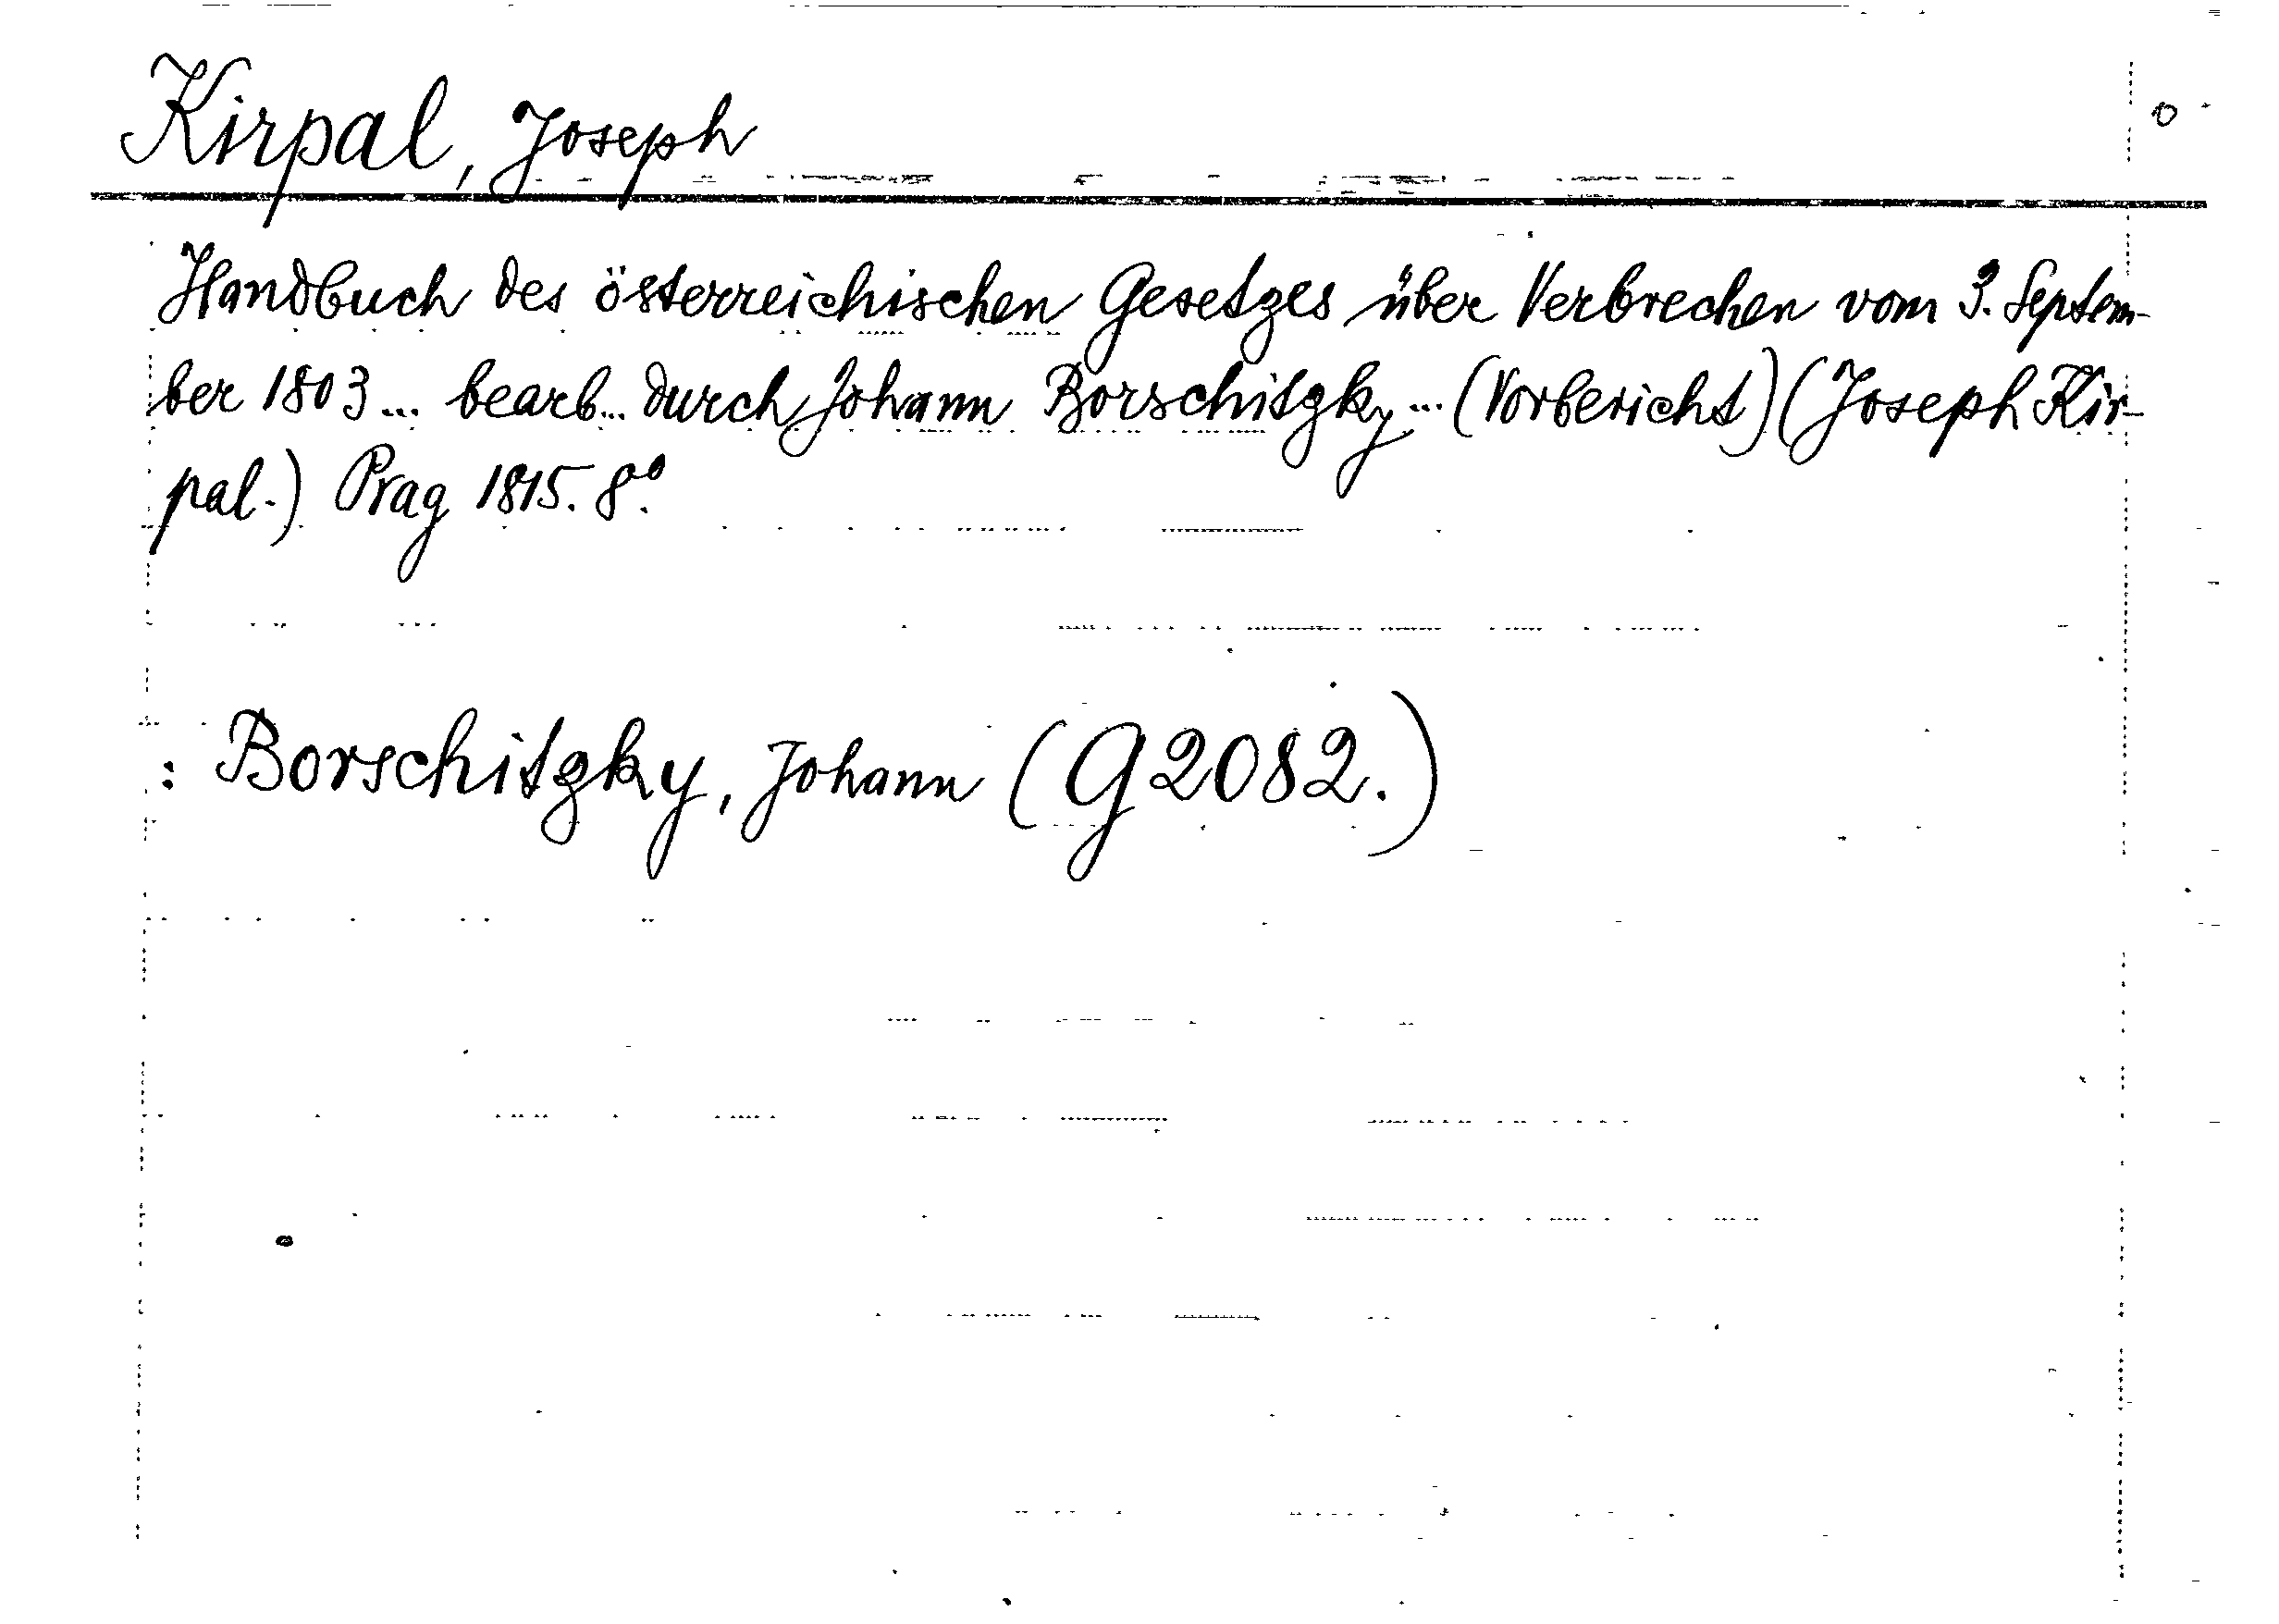 Kirpal, Joseph
Handbuch des österreichischen Gesetzes über Verbrechen vom 3. Septem-
ber 1803... bearb... durch Johann Borschitzky... (Vorbericht) (Joseph Kir-
pal.) Prag 1815. 8°.
: Borschitzky, Johann (G 2082.)